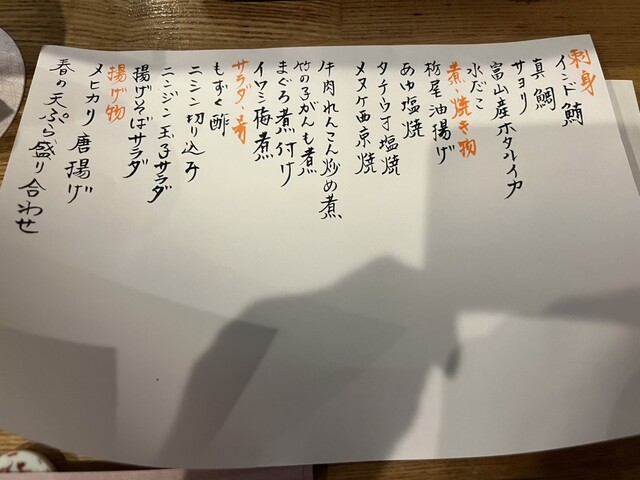 刺身
インド鮪
真鯛
サヨリ
富山産ホタルイカ
水だこ
煮・焼き物
栃尾油揚げ
あゆ塩焼
タチウオ塩焼
メヌケ西京焼
牛肉れんこん炒め煮
竹の子がんも煮
まぐろ煮付け
イワシ梅煮
サラダ・肴
もずく酢
ニシン切り込み
ニンジン玉子サラダ
揚げそばサラダ
揚げ物
メヒカリ 唐揚げ
春の天ぷら盛り合わせ